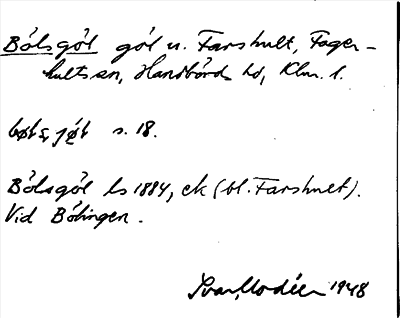 Bölsgöl göl n. Farshult, Fager-
hults sn, Handbörd hd, Klm. l.
s. 18.
Bölsgöl ls 1884, ek (bl. Farshult).
Vid Bölingen.
Ivar Modéer 1948